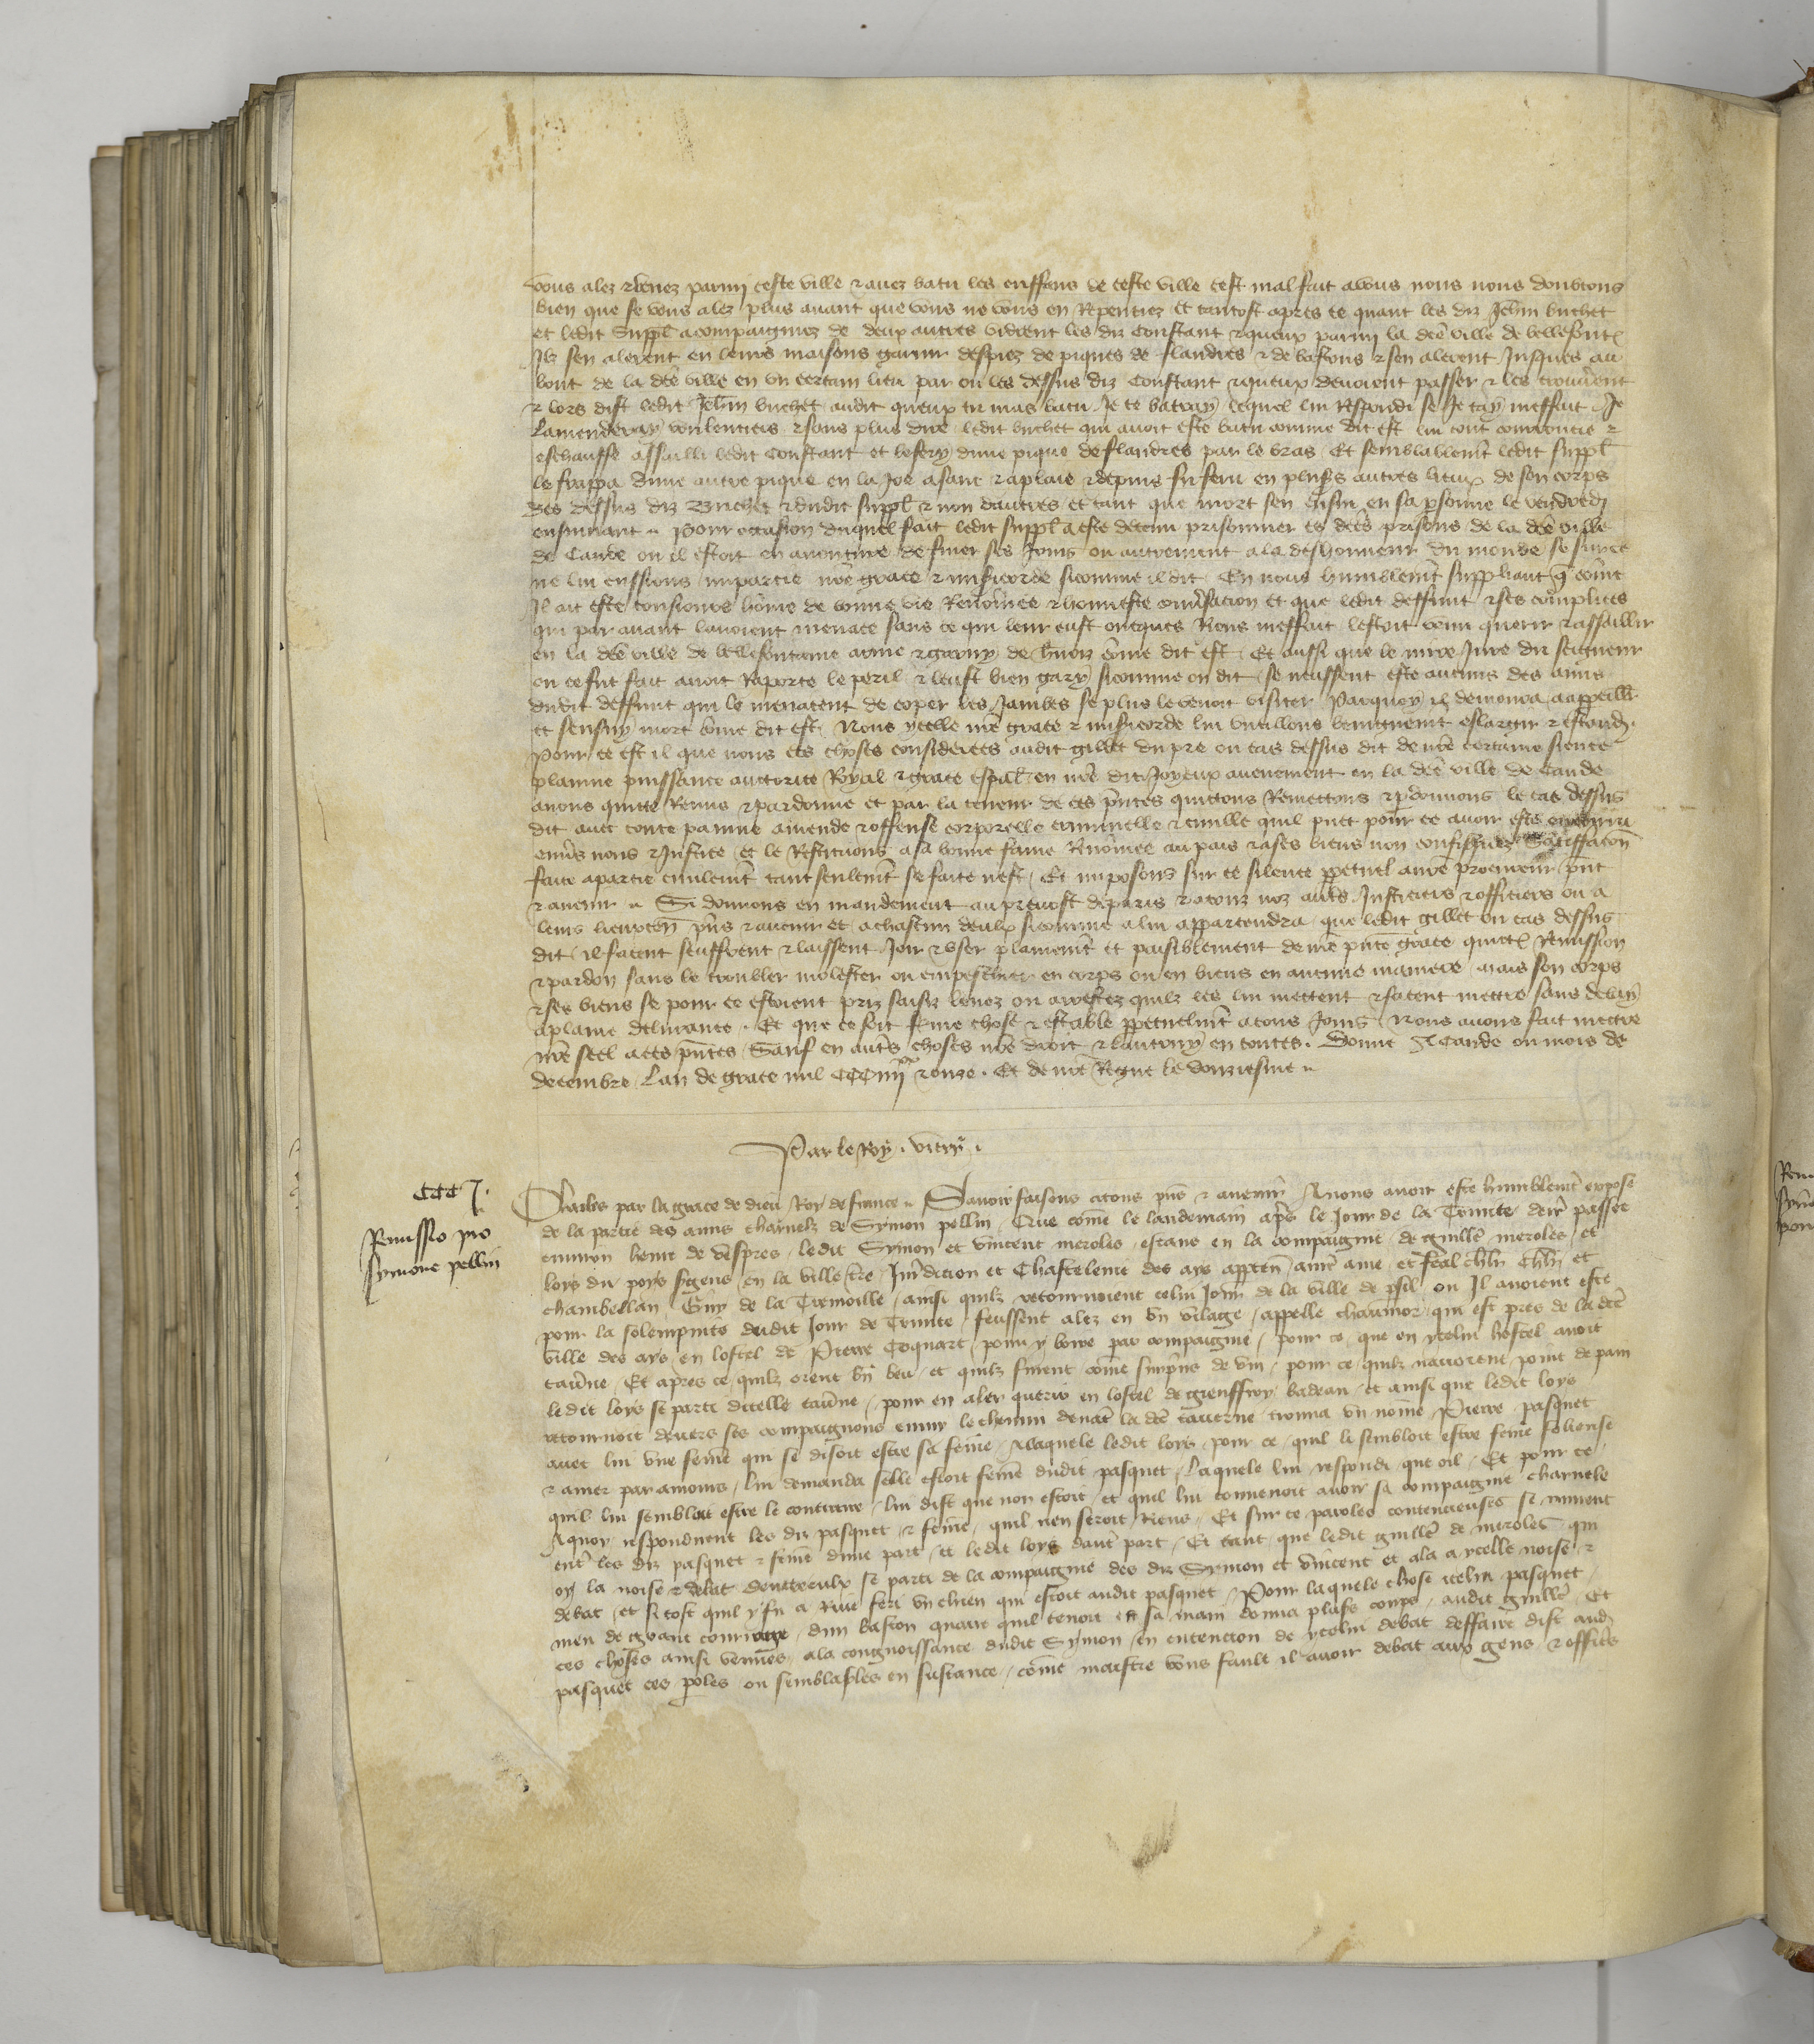 vous alez & venez parmi ceste ville & avez batu les enffans de ceste ville cest mal fait a vous nous nous doubtons
bien que se vous alez plus avant que vous ne vous en Repentiez Et tantost apres ce quant les diz Jehan buchet
et ledit Suppl acompaigniez de deux autres virent les diz Constant & queux parmi la dce ville de bellefont
Ilz sen alerent en leurs maisons garnir despiez de piques de flandres & de bastons & sen alerent Jusques au
bout de la dce ville en un certain lieu par ou les dessus diz Constant & queux devoient passer & les trouverent
& lors dist ledit Jehan buchet audit queux tu mas batu Je te batray lequel lui Respondi se Je tay meffait Je
lamenderay voulentiers & sans plus dire ledit buchet qui avoit este batu comme dit est lui tout courroucie &
eschauffe assailli ledit Constant et lefery dune pique de flandres par le bras Et semblablemt ledit suppl
le frappa dune autre pique en la Joe a sanc & a plaie & depuis fu feru en plus's autres lieux de son corps
Des dessus diz Buchet & dudit suppl & non dautres et tant que mort sen ensui en sa psonne le vendredi
ensuivant Pour occasion duquel fait ledit suppl a este detenu prisonnier es dces prisons de la dce ville
de Cande ou il estoit en aventure de finer ses Jours ou autrement a la deshonneur du monde se sur ce
ne lui eussions impartie nre grace & misicorde sicomme il dit En nous humblemt suppliant q come
Il ait este tousiours home de bonne vie Renomee & honneste conv'sacion et que ledit deffunt & ses complices
qui par avant lavoient menace sans ce qui leur eust oncques Riens meffait lestoit venu querir & assaillir
en la dce ville de bellefontaine arme & garny de come dit est Et aussi que le mire Jure du seigneur
ou ce fut fait avoit Raporte le peril & leust bien gary sicomme on dit se neussent este aucuns des amis
dudit deffunt qui le menacent de coper les Jambes se plus le venoit visiter Parquoy il demoura
et sensuy mort come dit est Nous ycelle nre grace & misicorde lui vueillons benignemt eslargir & estandre
Pour ce est il que nous ces choses considerees audit gillet du pre ou cas dessus dit de nre certaine science
plaine puissance auctorite Royal & grace espal en nre dit Joyeux avenement en la dce ville de Cande
avons quitte Remis & pardonne et par la teneur de ces pntes quittons Remettons & pdonnons le cas dessus
dit avec toute painne amende & offense corporelle criminelle & civille quil puet pour ce avoir este encouru
envs nous & Justice et le Restituons a sa bonne fame Renomee au pais & a ses biens non confisquez Satiffacon
faite a partie civilemt tant seulemt se faite nest Et imposons sur ce silence ppetuel a nre procureur pnt
& avenir Si donnons en mandement au prevost de paris & a touz noz auts Justiciers & officiers ou a
leurs lieuxten pns & avenir et a chascun deulx sicomme a lui appartendra que ledit gillet ou cas dessus
dit il facent seuffrent & laissent Joir & user plainemt et paisiblement de nre pnte grace quitt Remission
& pardon sans le troubler molester ou empescher en corps ou en biens en aucune maniere mais son corps
& ses biens se pour ce estoient priz saisiz levez ou arrestez quilz les lui mettent & facent mettre sans delay
a plaine delivrance Et que ce soit ferme chose & estable ppetuelmt a tous Jours Nous avons fait mettre
nre seel a ces pntes Sauf en auts choses nre droit & lautruy en toutes. Donne A Cande ou mois de
decembre Lan de grace mil CCC iiijxx & onze. Et de nre Regne le douziesme
Par le Roy. vitry.
CCC J.
Remissio pro
symone pellin
Charles par la grace de dieu Roy de france Savoir faisons a tous pns & avenir A nous avoir este humblemt expose
de la partie des amis charnelz de Symon pellin Que come le landemain aps le Jour de la Trinite derr passee
environ heure de vespres ledit Symon et vincent meroles estans en la compaignie de guille meroles et
loys du poys sgens en la ville tre Jurdicion et Chastelenie des ays appten a nre ame et feal chlr chlr et
chambellan Guy de la Tremoille ainsi quilz retournoient celui Jour de la ville de psil ou Il avoient este
pour la solempnite dudit Jour de Trinite feussent alez en un vilage appelle chaumor qui est pres de la dce
ville des ays en lostel de Pierre Coquart pour y boire par compaignie pour ce que en ycelui hostel avoit
taverne Et apres ce quilz orent un beu et quilz furent come surprins de vin pour ce quilz navoient point de pain
ledit loys se parti dicelle taverne pour en aler querir en lostel de gieuffroy badeau et ainsi que ledit loys
retournoit devers ses compaignons emmy le chemin devant la dce taverne trouva un nome Pierre pasquet
avec lui une feme qui se disoit estre sa feme A laquele ledit loys pour ce quil li sembloit estre feme foliense
& amer par amours lui demanda selle estoit feme dudit pasquet Laquele lui respondi que oil Et pour ce
quil lui sembloit estre le contraire lui dist que non estoit et quil lui convenoit avoir sa compaignie charnele
A quoy respondirent les diz pasquet & feme quil nen seroit Riens Et sur ce paroles contencieuses se murent
entre les diz pasquet & feme dune part et ledit loys daut part Et tant que ledit guille de meroles qui
oy la noise & debat dentreulx se parti de la compaignie des diz Symon et vincent et ala a ycelle noise &
debat et si tost quil y fu a Rive feri un chien qui estoit audit pasquet Pour laquele chose icelui pasquet
meu de grant courrage dun baston quarre quil tenoit en sa main donna plus's cops audit guille Et
ces choses ainsi venues a la congnoissance dudit Symon en entencion de ycelui debat deffaire dist aud
pasquet ces poles ou semblables en sustance come maistre vous fault il avoir debat aux gens & officrs